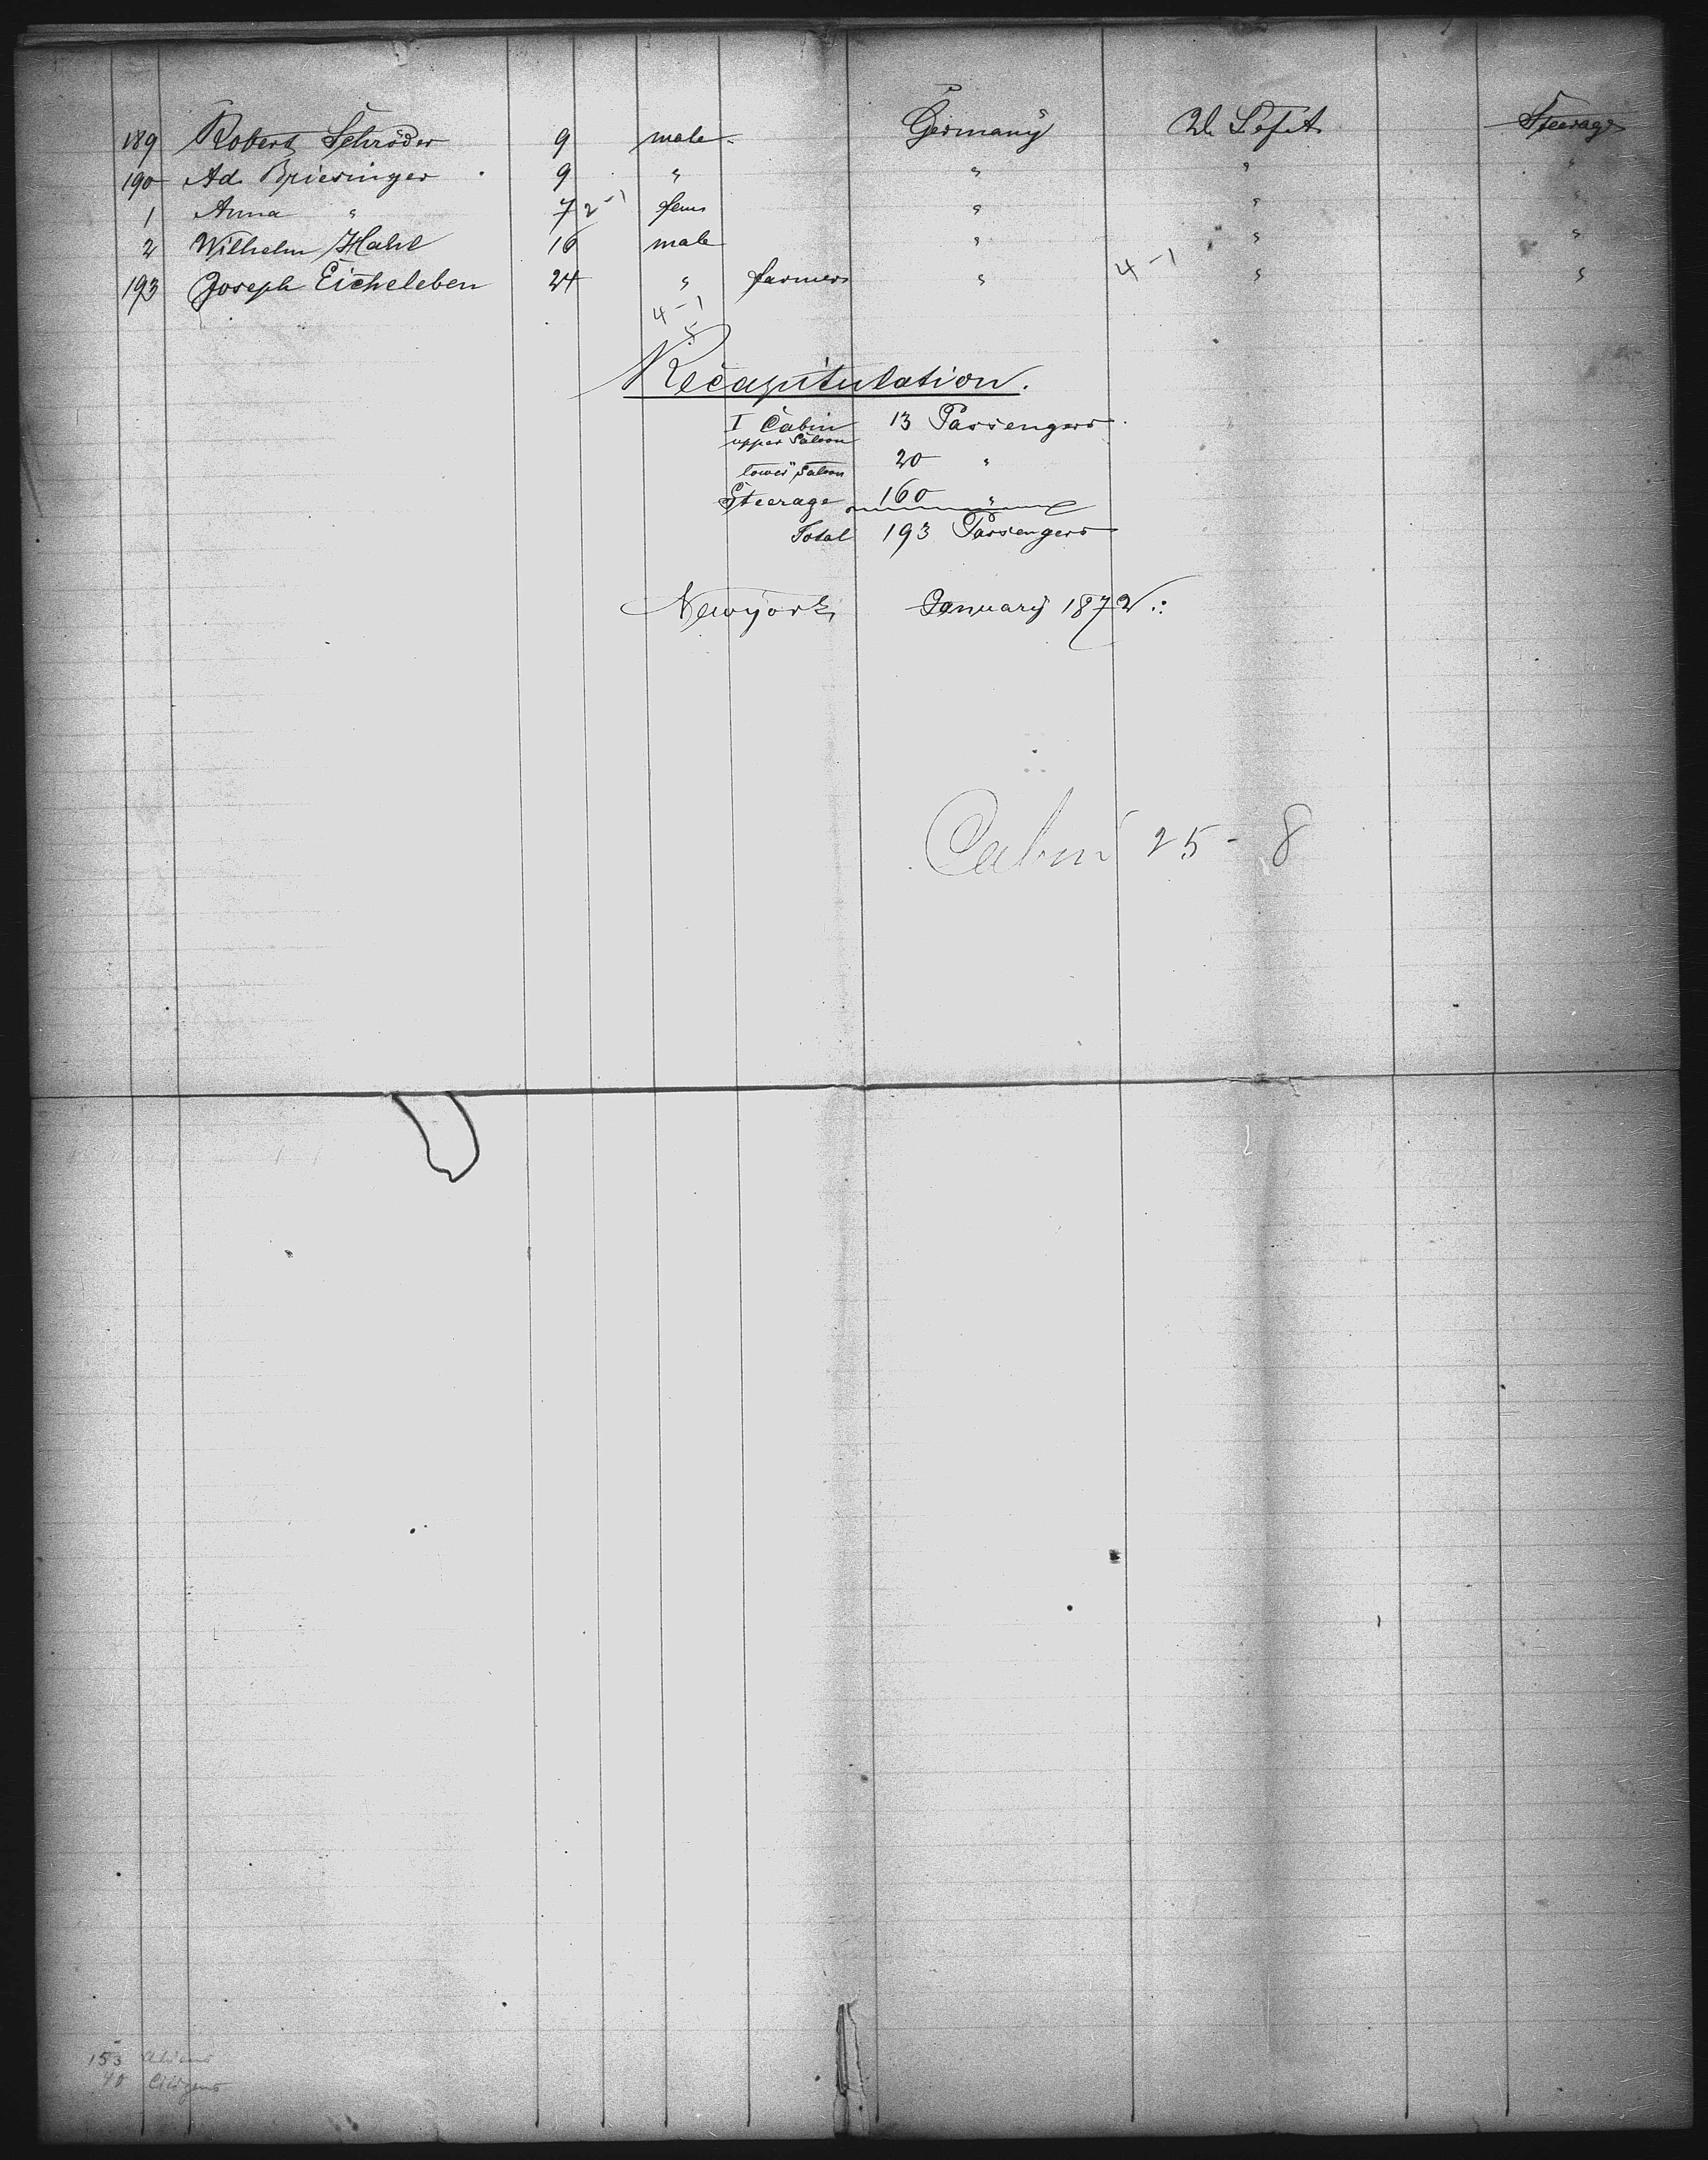 189 Robert Schröder 9 male Germany U. S. of A. Steerage
190 Ad. Briesinger 9 " " " "
1 Anna " 7 2-1 fem " " "
2 Wilhelm Hahl 16 male " " "
193 Joseph Eicheleben 24 " farmer " 4-1 " "
4-1
5
Recapitulation.
I Cabin 13 Passengers
upper Saloon
lower Saloon 20 "
Steerage 160 "
Total 193 Passengers
Newyork January 1872
Cabin 25-8
153 Aliens
40 Citizens